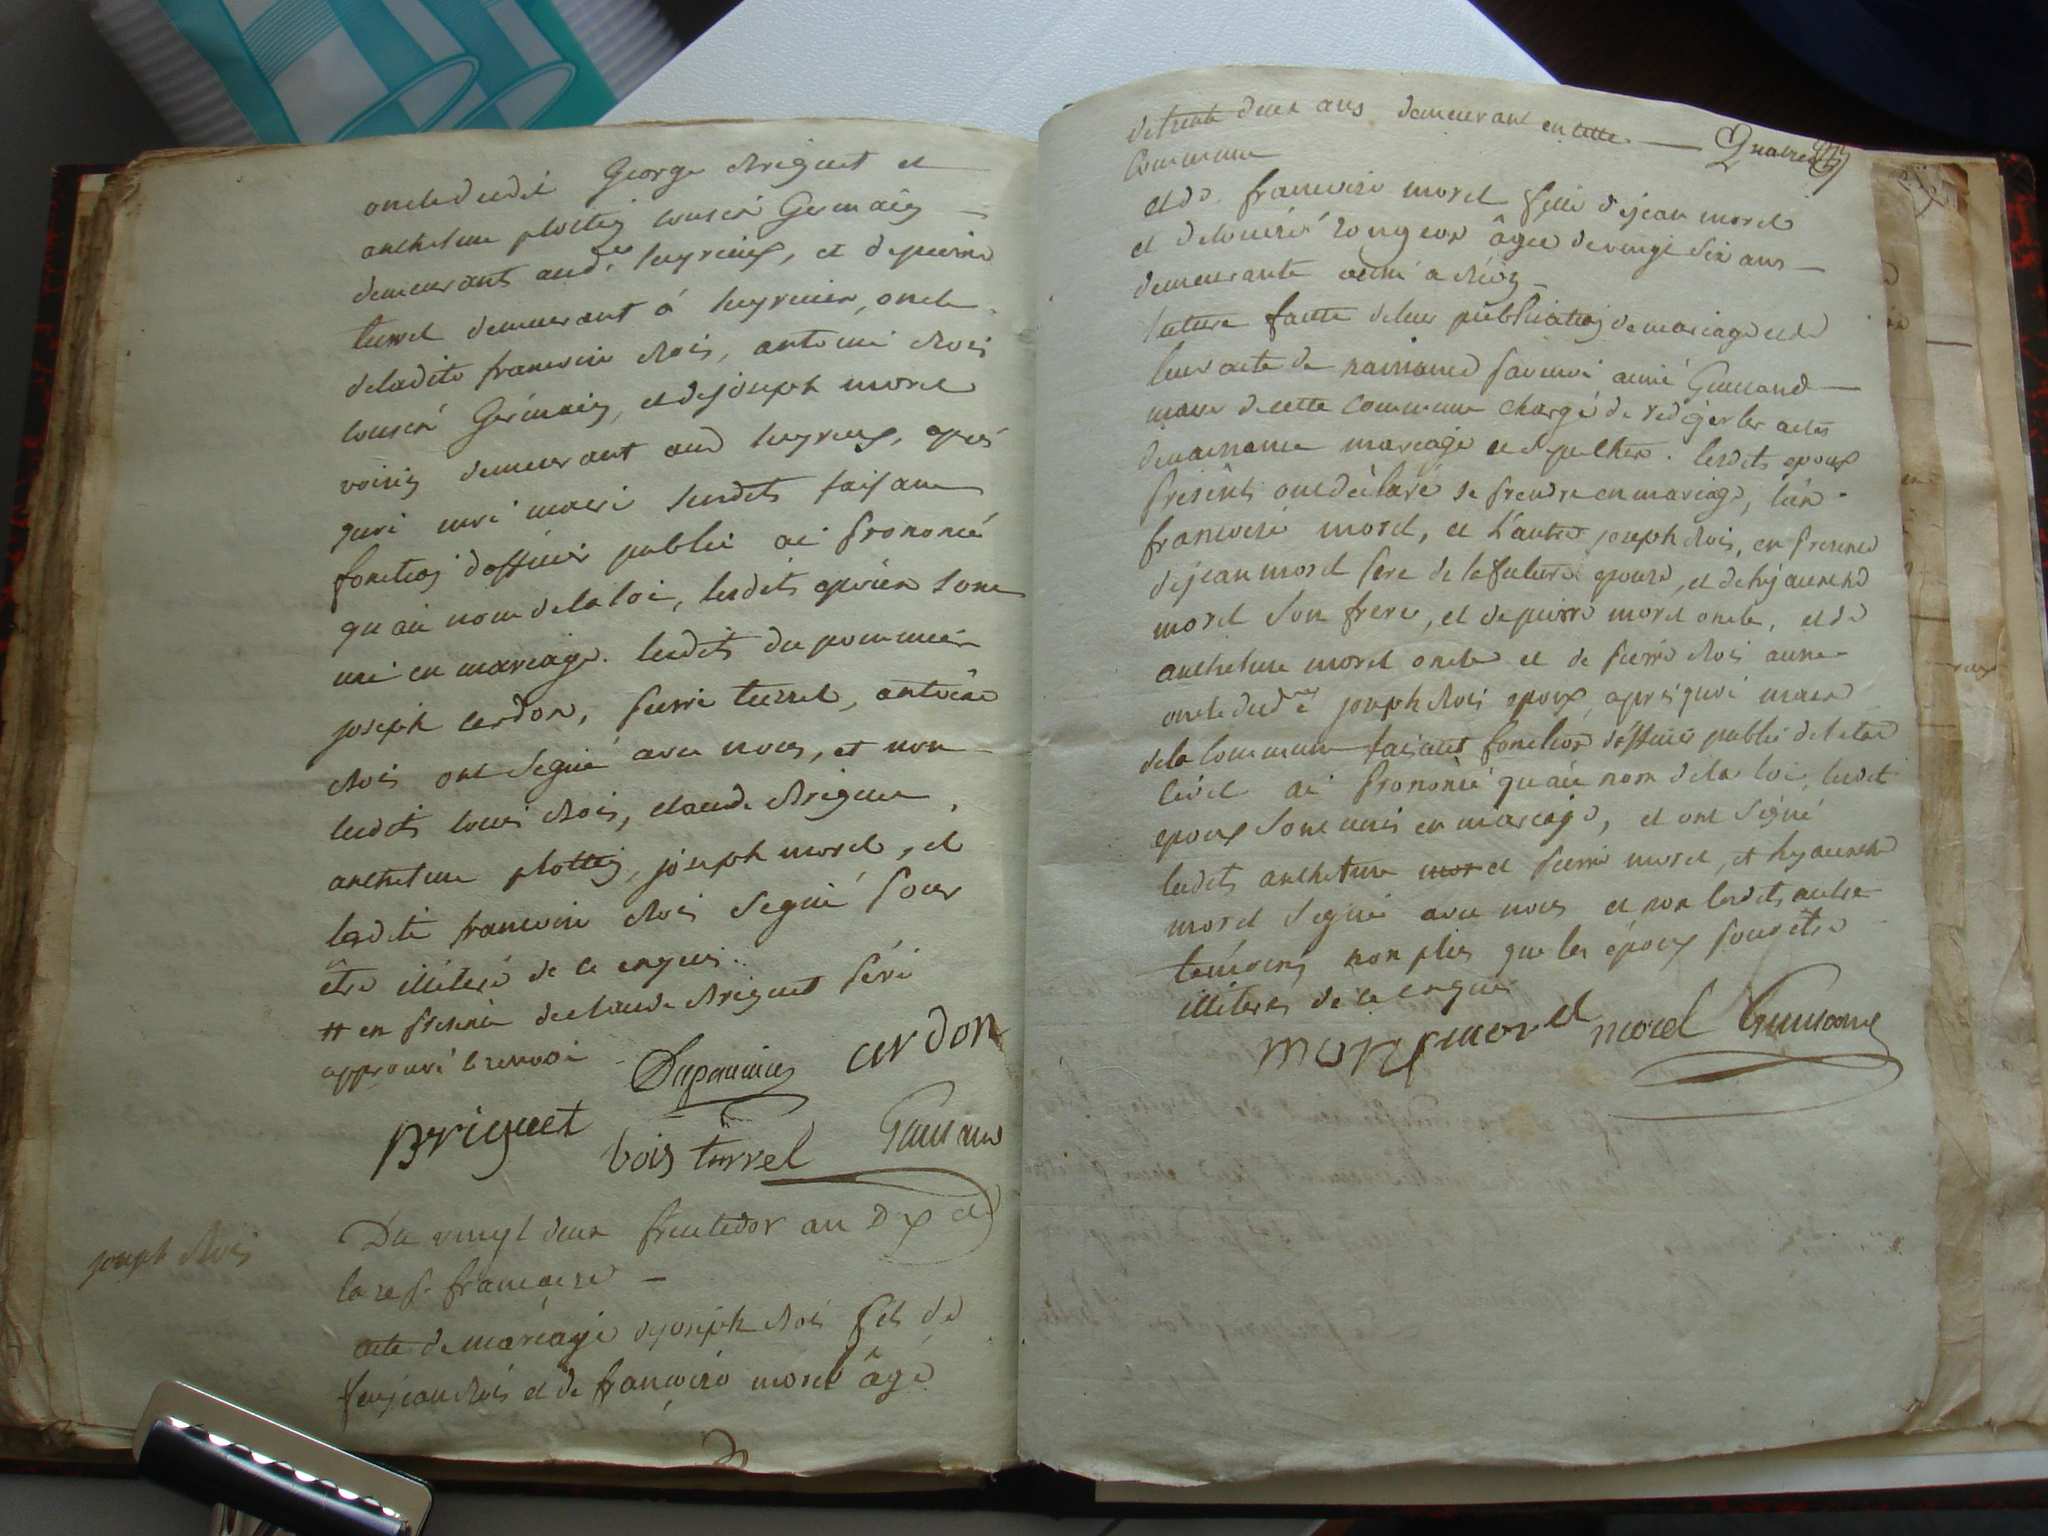 oncle dudit George Briguet et
anthelme plottin cousin Germain
demeurant aud. leyrieux, et de pierre
turrel demeurant à leyrieu, oncle
de ladite francoise Bois, antoine Bois
cousin Germain, et de joseph morel
voisin demeurant aud leyrieux, après
quoi moi maire susdits faisant
fonction d'officier public ai prononcé
qu'au nom de la loi, lesdits epoux sont
uni en mariage. lesdits dupommier
joseph cerdon, pierre turrel, antoine
Bois ont signé avec nous, et non
lesdits louis Bois, claude Briguet,
anthelme plottin, joseph morel, et
ladite francoise Bois signé pour
être illiteré de ce enquis.
# en presence de claude Briguet père
approuvé le renvoi
Dupommier cerdon
Briguet bois turrel
joseph Bois
Du vingt deux fructidor an Dix de
la rep. francaise
acte de mariage de joseph Bois fils de
feu jean Bois et de francoise morel âgé
de trente deux ans demeurant en cette
Commune
et de francoise morel fille de jean morel
et de âgée de vingt six ans
demeurante
future faute de leur publication de mariage et de
leur acte de naissance par moi aimé
maire de cette Commune chargé de rediger les actes
de naissance mariage et sepulture. lesdits epoux
presents ont déclaré se prendre en mariage, l'un
francoise morel, et l'autre joseph Bois, en presence
de jean morel pere de la future epouse, et de hyacinthe
morel son frere, et de pierre morel oncle, et de
anthelme morel oncle et de pierre Bois aussi
oncle dud joseph Bois epoux, après quoi maire
de la Commune faisant fonction d'officier public de l'etat
civil ai prononcé qu'au nom de la loi, lesdits
epoux sont unis en mariage, et ont signé
lesdits anthelme morel pierre morel, et hyacinthe
morel signé avec nous et non lesdits autre
temoins non plus que les époux pour etre
illiteres de ce enquis
morel morel morel